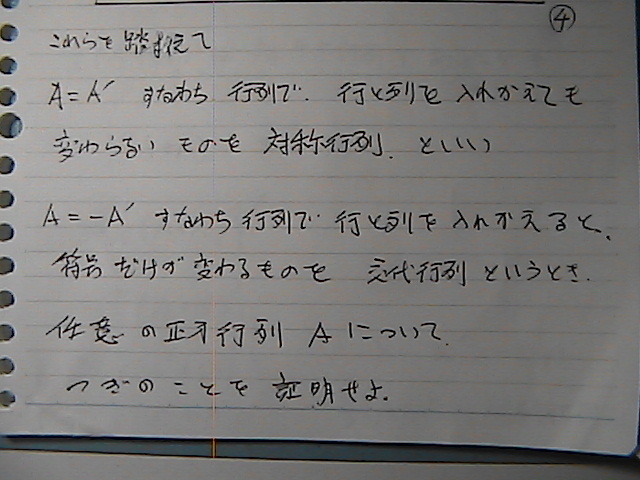 ④
これらを踏まえて
A=A′ すなわち 行列で、行と列を入れかえても
変わらない ものを 対称行列、といい
A=-A′ すなわち行列で 行と列を入れかえると、
符号だけが変わるものを 交代行列 というとき、
任意の正方行列 A について、
つぎのことを証明せよ。